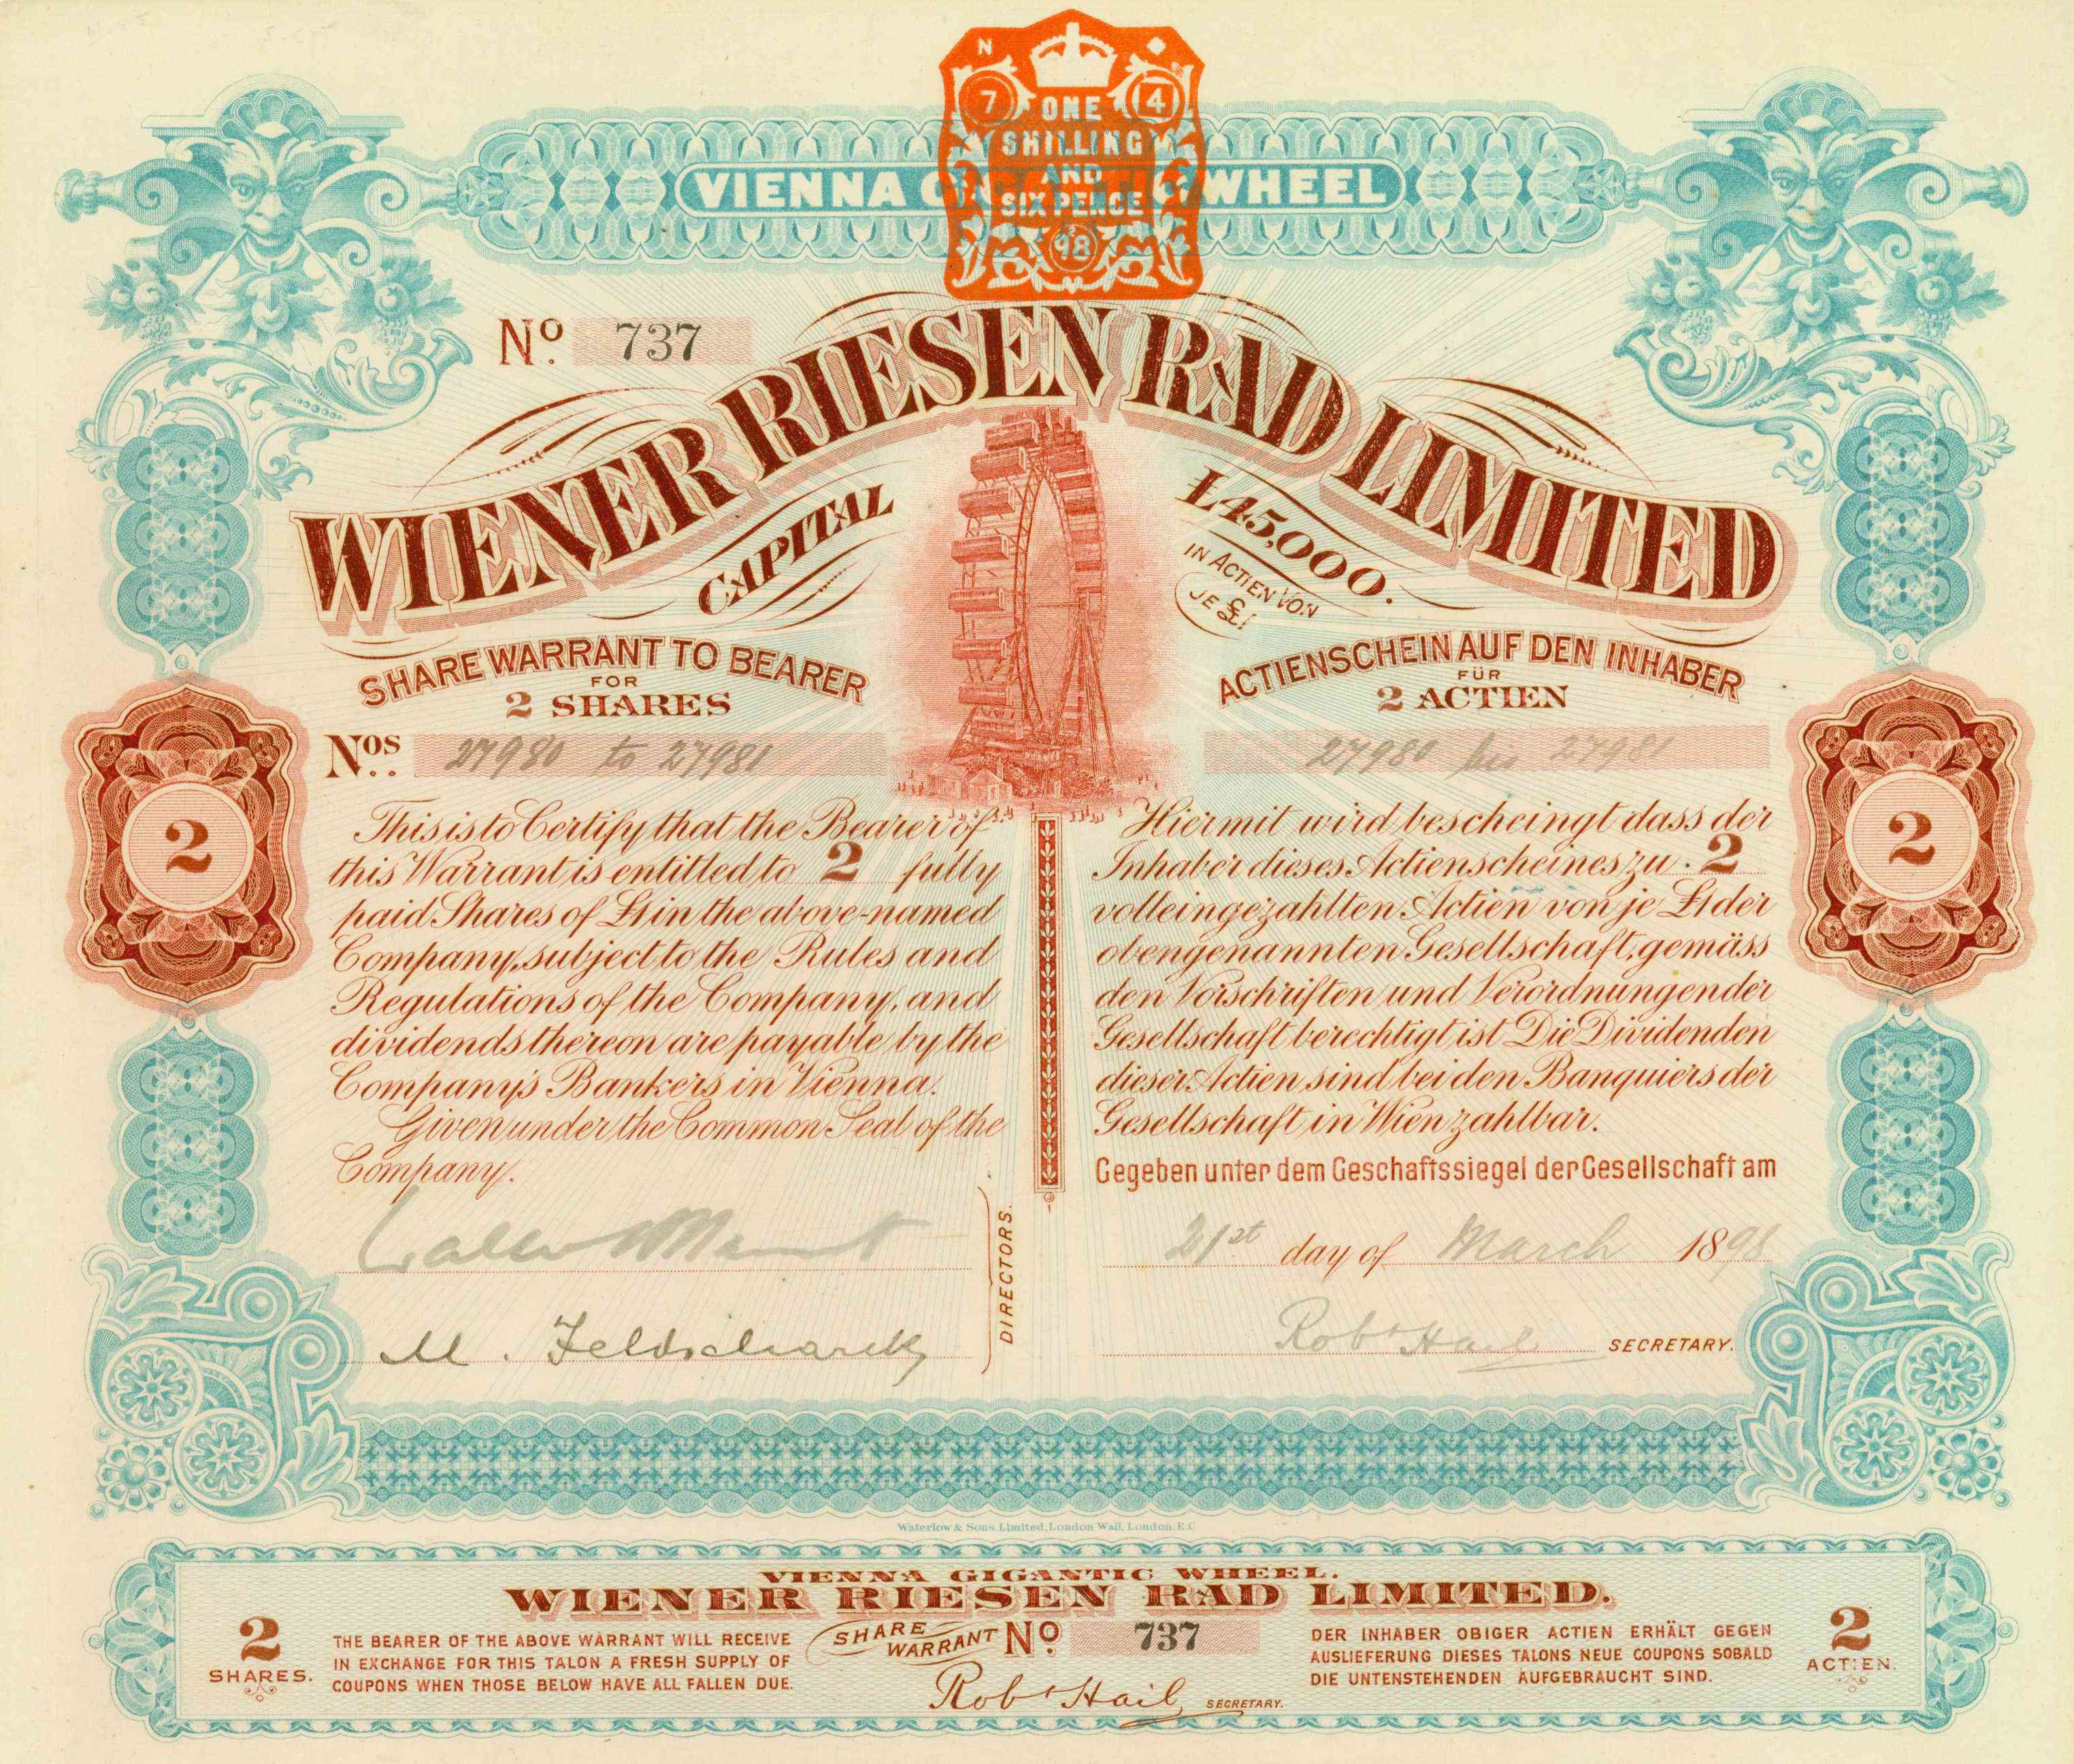 N 7 4
ONE
SHILLING
AND
SIXPENCE
98
VIENNA GIGANTIC WHEEL
No. 737
WIENER RIESEN RAD LIMITED
CAPITAL £45,000.
IN ACTIEN VON
JE £1
SHARE WARRANT TO BEARER
FOR
2 SHARES
Nos. 27980 to 27981
2
This is to Certify that the Bearer of
this Warrant is entitled to 2 fully
paid Shares of £1 in the above-named
Company, subject to the Rules and
Regulations of the Company, and
dividends thereon are payable by the
Company's Bankers in Vienna.
Given under the Common Seal of the
Company.
M. Feldscharek
DIRECTORS.
ACTIENSCHEIN AUF DEN INHABER
FÜR
2 ACTIEN
27980 bis 27981
Hiermit wird bescheingt dass der
Inhaber dieses Actienscheines zu 2
volleingezahlten Actien von je £1 der
obengenannten Gesellschaft, gemäss
den Vorschriften und Verordnungen der
Gesellschaft berechtigt ist Die Dividenden
dieser Actien sind bei den Banquiers der
Gesellschaft in Wien zahlbar.
Gegeben unter dem Geschaftssiegel der Gesellschaft am
21st day of March 1898
Robt Hail SECRETARY.
2
Waterlow & Sons, Limited, London Wall, London, E.C
VIENNA GIGANTIC WHEEL.
WIENER RIESEN RAD LIMITED.
2
SHARES.
THE BEARER OF THE ABOVE WARRANT WILL RECEIVE
IN EXCHANGE FOR THIS TALON A FRESH SUPPLY OF
COUPONS WHEN THOSE BELOW HAVE ALL FALLEN DUE.
SHARE WARRANT No 737
Robt Hail SECRETARY.
DER INHABER OBIGER ACTIEN ERHÄLT GEGEN
AUSLIEFERUNG DIESES TALONS NEUE COUPONS SOBALD
DIE UNTENSTEHENDEN AUFGEBRAUCHT SIND.
2
ACTIEN.